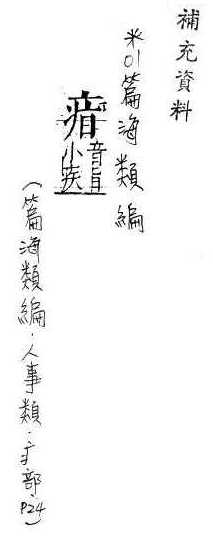 補充資料
※01篇海類編
音旨
小疾
(篇海類編．人事類．疒部．P24)